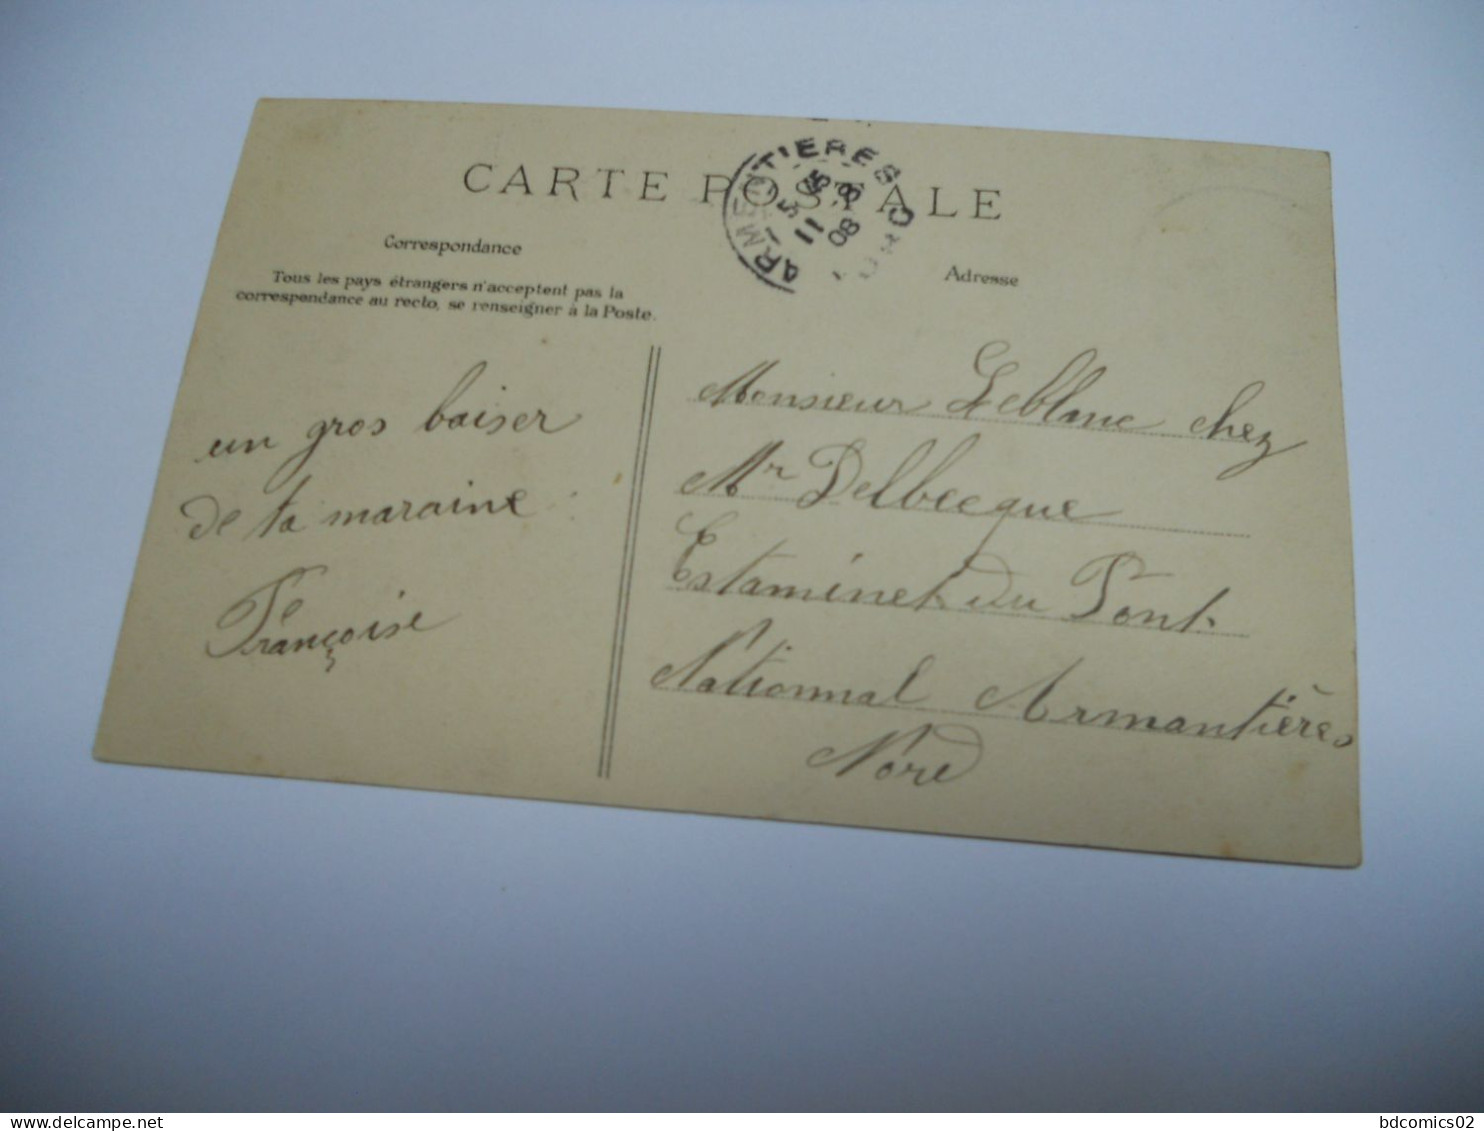 CARTE POSTALE
ARMENTIERES
NORD
11
08
Correspondance
Tous les pays étrangers n'acceptent pas la
correspondance au recto, se renseigner à la Poste.
Adresse
un gros baiser
de ta maraine
Françoise
Monsieur Leblanc chez
Mr Delbecque
Estaminet du Pont
National Armantières
Nord
bdcomics02